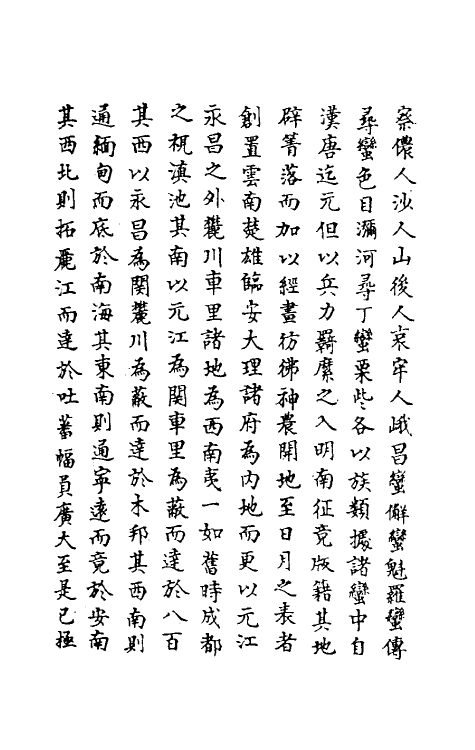 察儂人沙人山後人哀牢人峨昌蠻懈蠻魁羅蠻傳
尋蠻色目瀰河尋丁蠻栗些各以族類據諸蠻中自
漢唐迄元但以兵力羇縻之入明南征竟版籍其地
辟箐落而加以經畫彷彿神農開地至日月之表者
創置雲南楚雄臨安大理諸府為內地而更以元江
永昌之外麓川車里諸地為西南夷一如舊時成都
之視滇池其南以元江為関車里為蔽而達於八百
其西以永昌為関麓川為蔽而達於木邦其西南則
通緬甸而底於南海其東南則通寧遠而竟於安南
其西北則拓麗江而達於吐蕃幅員廣大至是已極